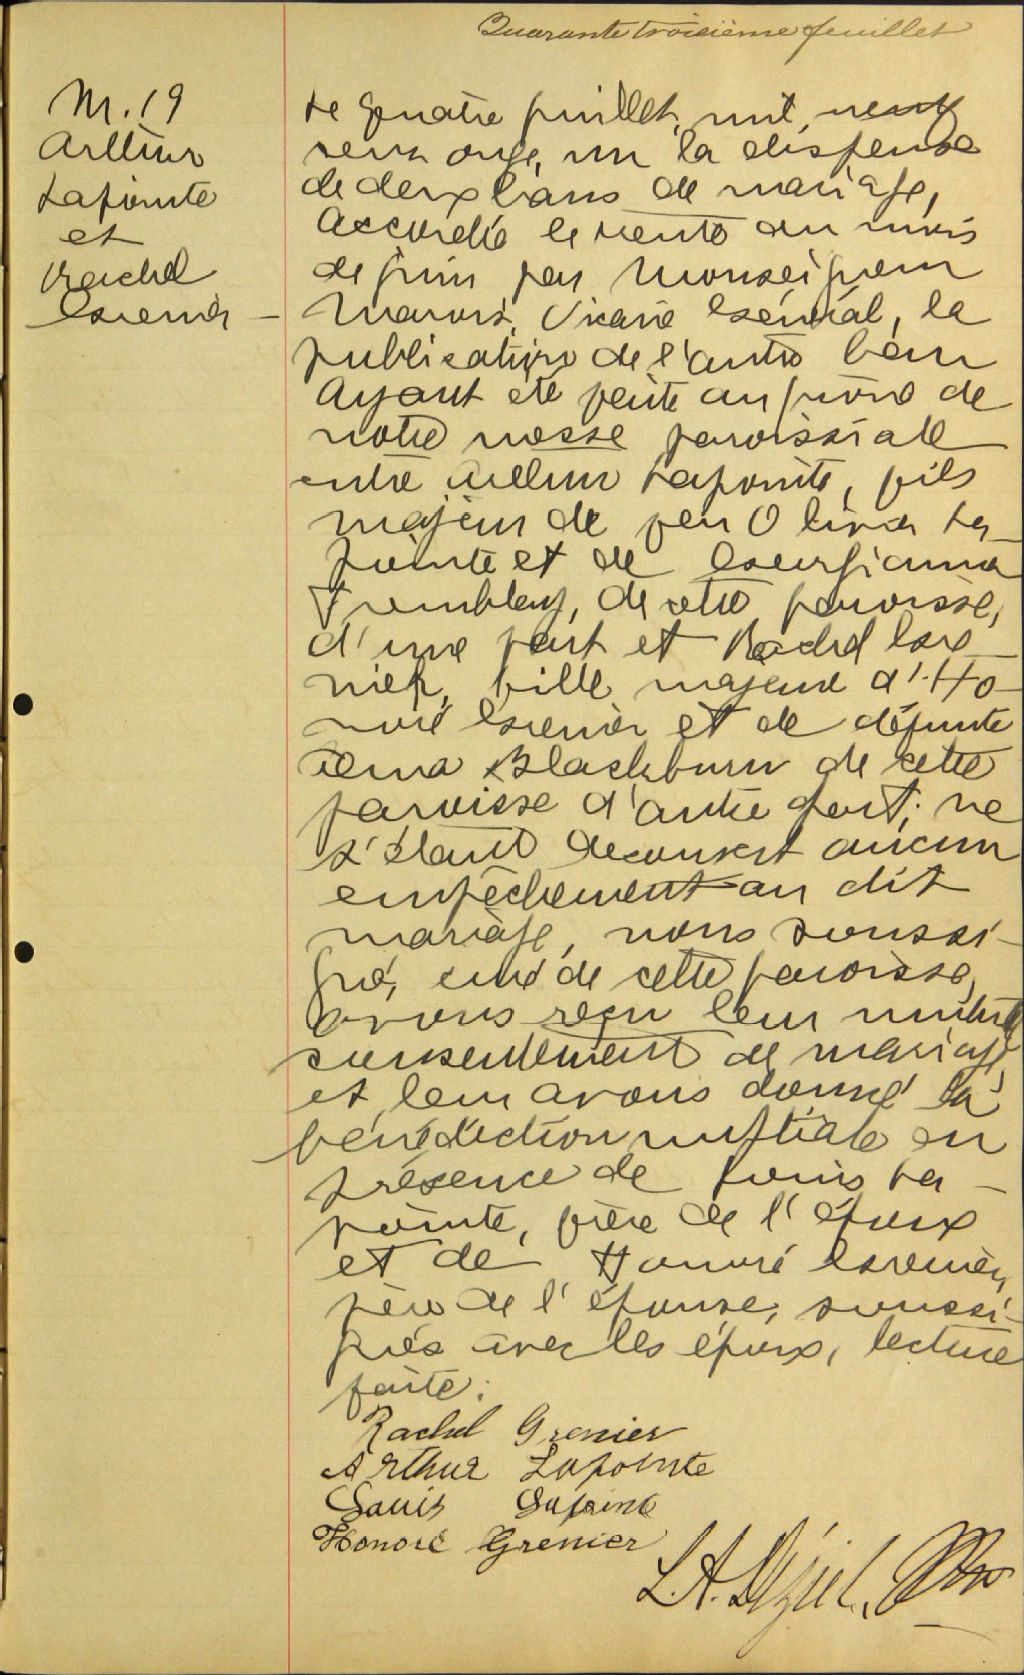 Quarante troisième feuillet
M. 19
Arthur
Lapointe
et
Rachel
Grenier
Le quatre juillet, mil neuf
cent onze, vu la dispense
de deux bans de mariage,
accordée le trente du mois
de juin par Monseigneur
Marois, Vicaire Général, la
publication de l'autre ban
ayant été faite au prône de
notre messe paroissiale
entre Arthur Lapointe, fils
majeur de feu Olivier La-
pointe et de Georgianna
Tremblay, de cette paroisse,
d'une part et Rachel Gre-
nier, fille majeure d'Ho-
noré Grenier et de défunte
Blackburn de cette
paroisse d'autre part; ne
s'étant découvert aucun
empêchement au dit
mariage, nous soussi-
gné, curé de cette paroisse,
avons reçu leur mutuel
consentement de mariage
et leur avons donné la
bénédiction nuptiale en
présence de Louis La-
pointe, frère de l'époux
et de Honoré Grenier,
père de l'épouse, soussi-
gnés avec les époux, lecture
faite.
Rachel Grenier
Arthur Lapointe
Louis Lapointe
Honoré Grenier
L.A. Déziel, Ptre